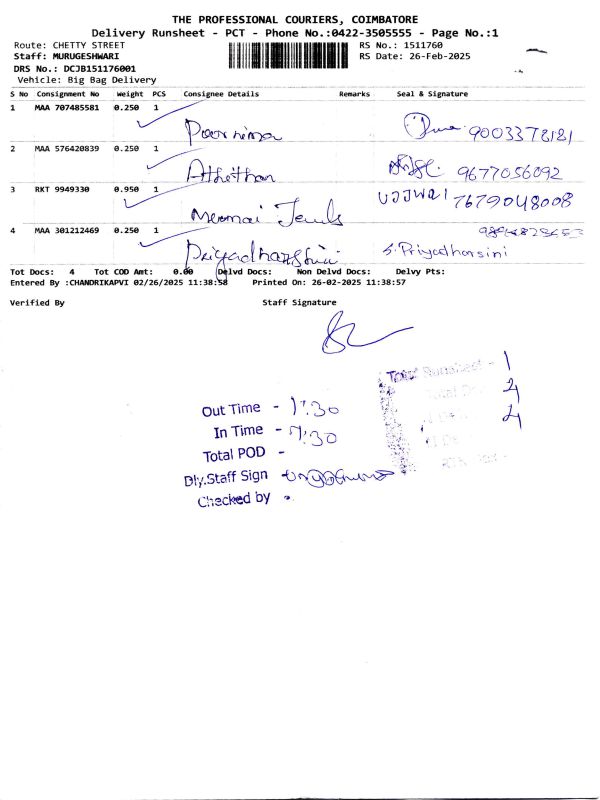 THE PROFESSIONAL COURIERS, COIMBATORE
Delivery Runsheet - PCT - Phone No.:0422-3505555 - Page No.:1
Route: CHETTY STREET RS No.: 1511760
Staff: MURUGESHWARI RS Date: 26-Feb-2025
DRS No.: DCJB151176001
Vehicle: Big Bag Delivery
S No Consignment No Weight PCS Consignee Details Remarks Seal & Signature
1 MAA 707485581 0.250 1 Poornima 9003378181
2 MAA 576420839 0.250 1 Athithan 9677056092
3 RKT 9949330 0.950 1 Meenai Jewels UJJWAl 7679048008
4 MAA 301212469 0.250 1 Priyadharshini S. Priyadharsini
Tot Docs: 4 Tot COD Amt: 0.00 Delvd Docs: Non Delvd Docs: Delvy Pts:
Entered By :CHANDRIKAPVI 02/26/2025 11:38:58 Printed On: 26-02-2025 11:38:57
Verified By Staff Signature
Total Runsheet - 1
Out Time - 1:30
In Time - 7:30
Total POD -
Dly.Staff Sign
Checked by